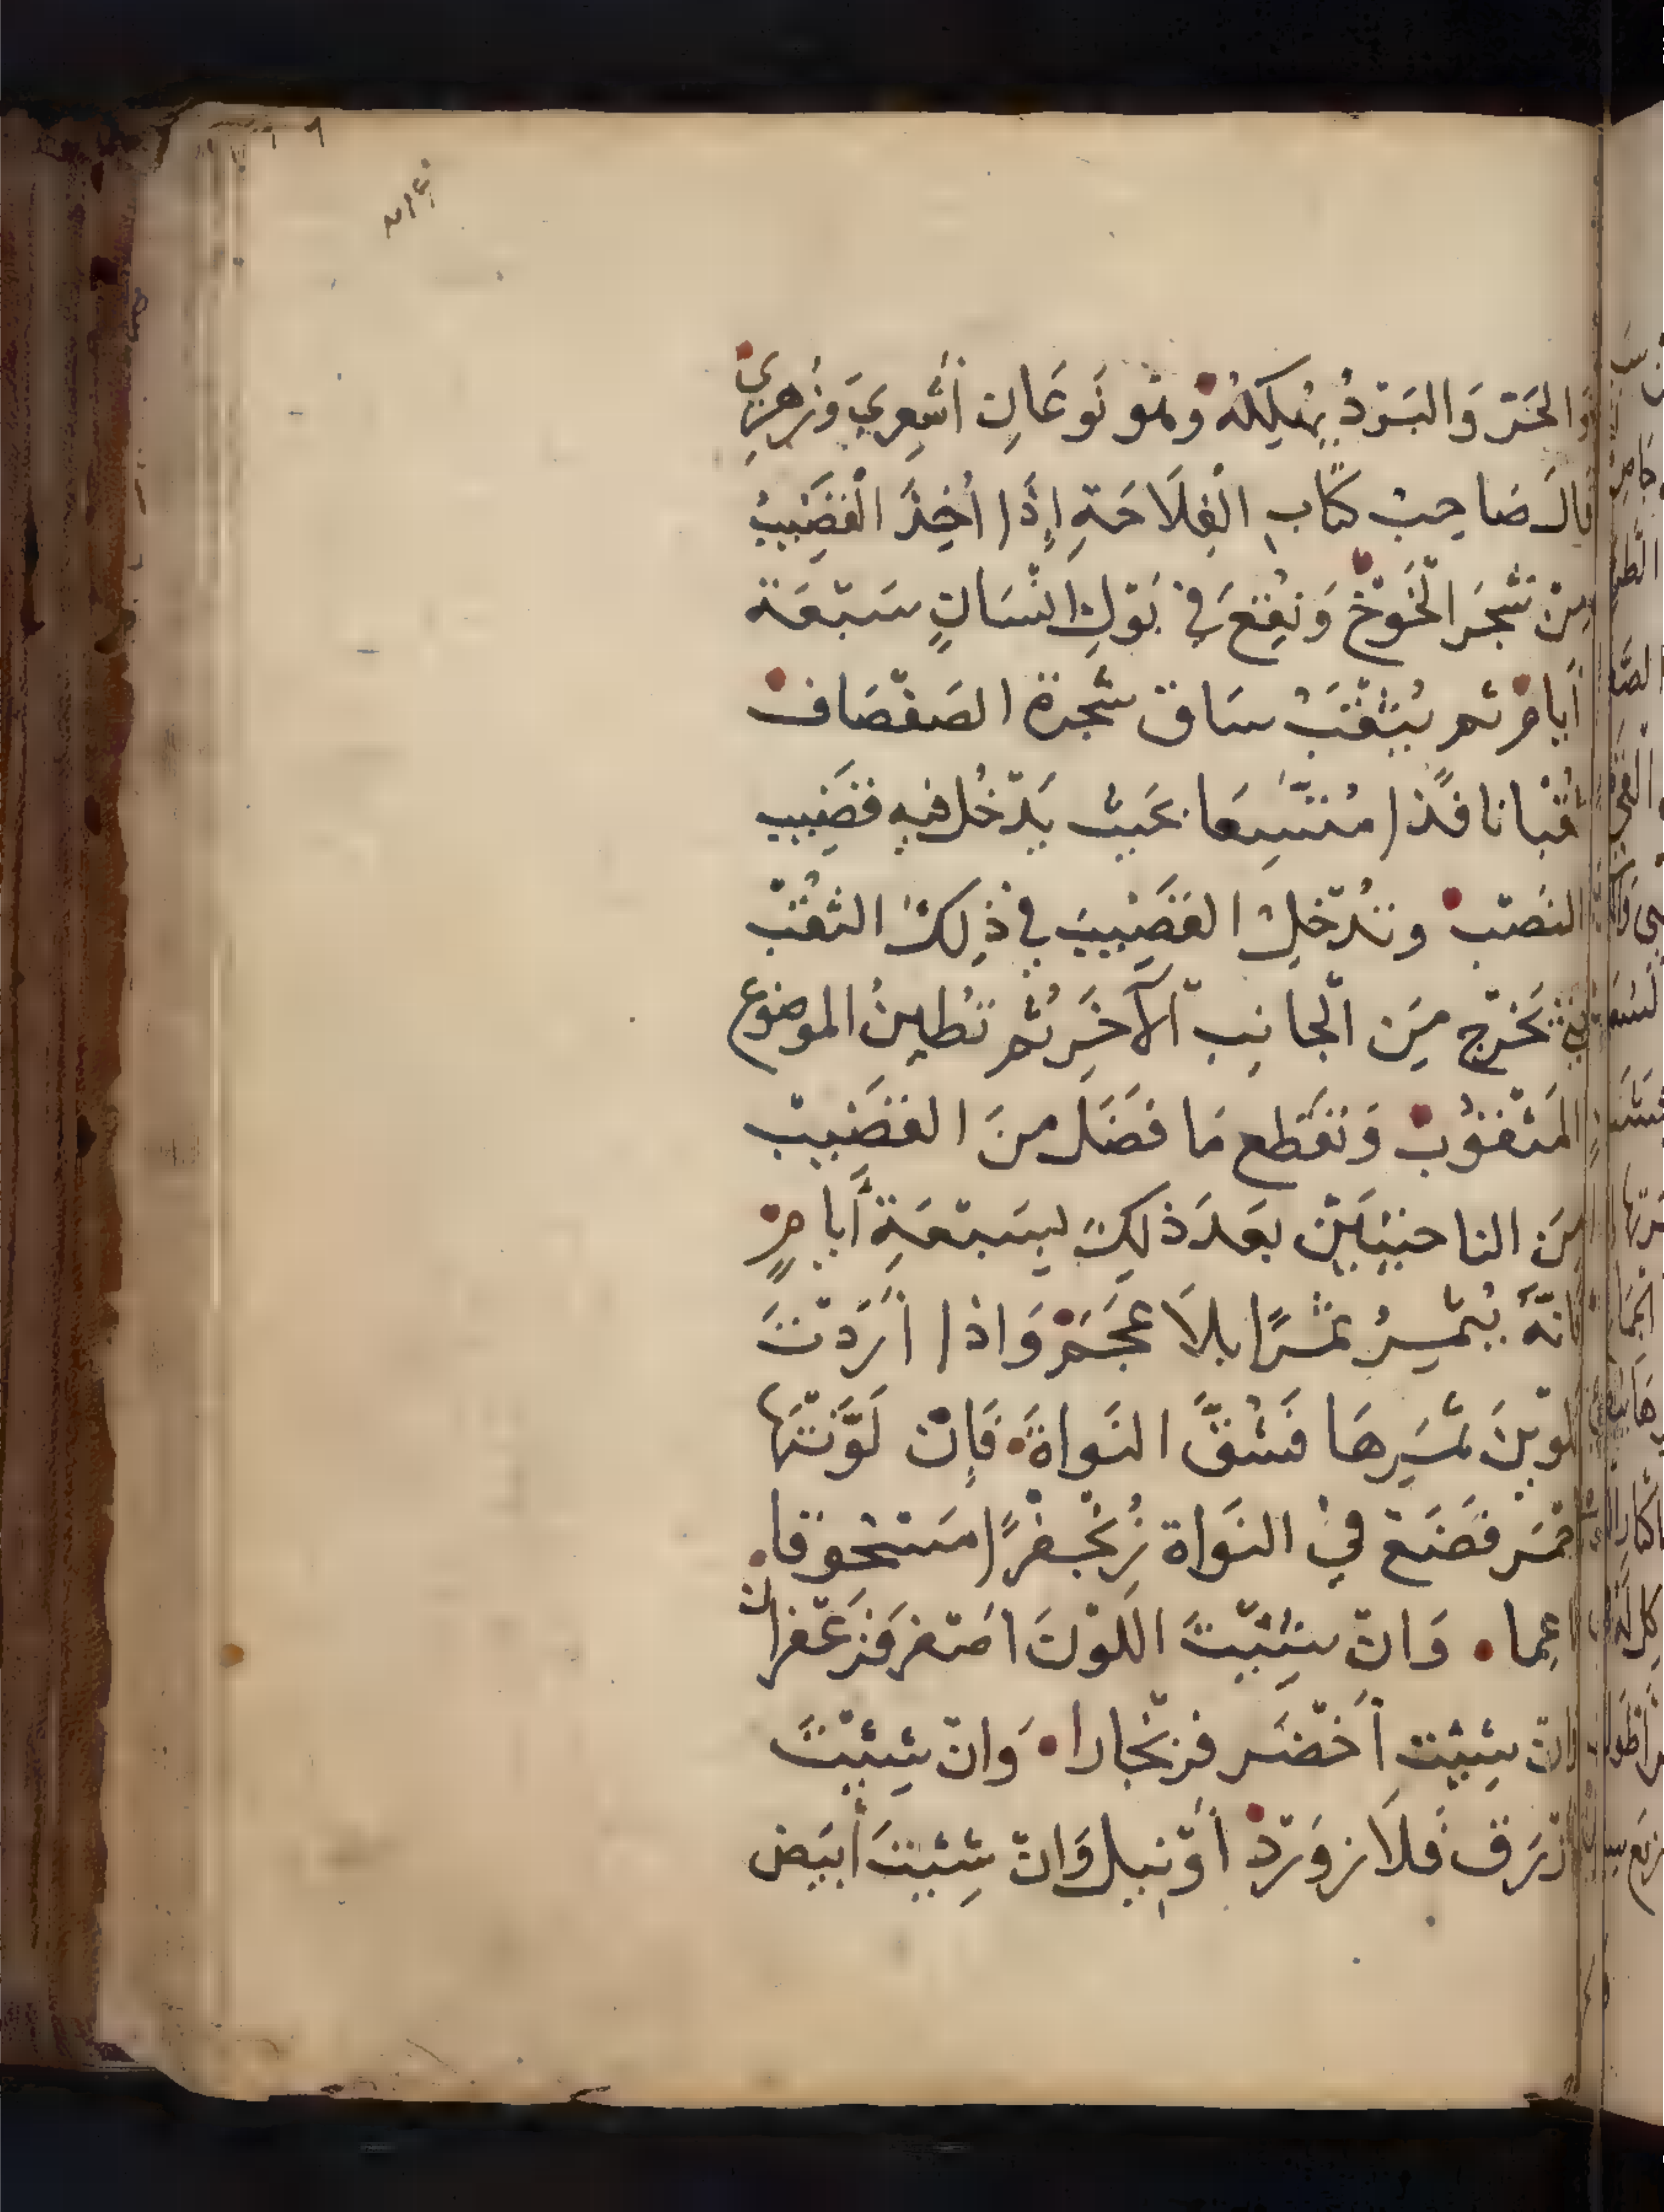 وَالحَرّ وَالبَرْدُ يُهْلِكُهُ وهُو نَوعَانِ أَشْعِرِيَ وَزُهرِيّ
قالَ صَاحِبُ كتَابِ الْفِلَاحَةِ إِذَا أُخِذَ الْقَضِيبُ
مِنْ شَجَر الْخَوْخْ وَنُقِعَ فِي بَوْلِ انْسَانٍ سَبْعَة
أَيامْ ثم يُثْقَبُ سَاق شَجرة الصَفْصَافْ
ثُقْبا نافذًا مُتَّسِعَا بحَيْث يَدْخُل فيهِ قضَيب
النصْبْ وتُدْخِلْ القَضِيبَ فِي ذٰلِكَ الثقْبْ
تَخرُج مِنَ الْجانِبِ الْآخَرِ ثُم تُطَيِنُ الموضوع
المَثْقُوبْ وَتَقْطع مَا فَضَلَ منَ القَضِيبْ
مِنَ الناحيَتَيْن بعَدَ ذلِكَ بِسَبْعَةِ أَيامٍ
فانّهُ يُثْمِرُ ثمَرًا بلَا عَجَمْ وَاذا أَرَدْتَ
تلوْينَ ثَمَرِهَا فَشُقَّ النَواةَ فَإنْ لَوَّنْتَهَا
احْمَر فَضَعْ فِيْ النَوَاة زُنْجُفْرًا مَسْحُوقا
ناعِما وَانْ شِئْتَ اللَوْنَ اصْفر فَزَعْفران
وَانْ شِئْتَ أَخْضَر فزنْجارا وَانْ شِئْتَ
أَزْرَق فَلَازوَرْدْ أَوْ نيل وَانْ شِئْتَ أَبيَض